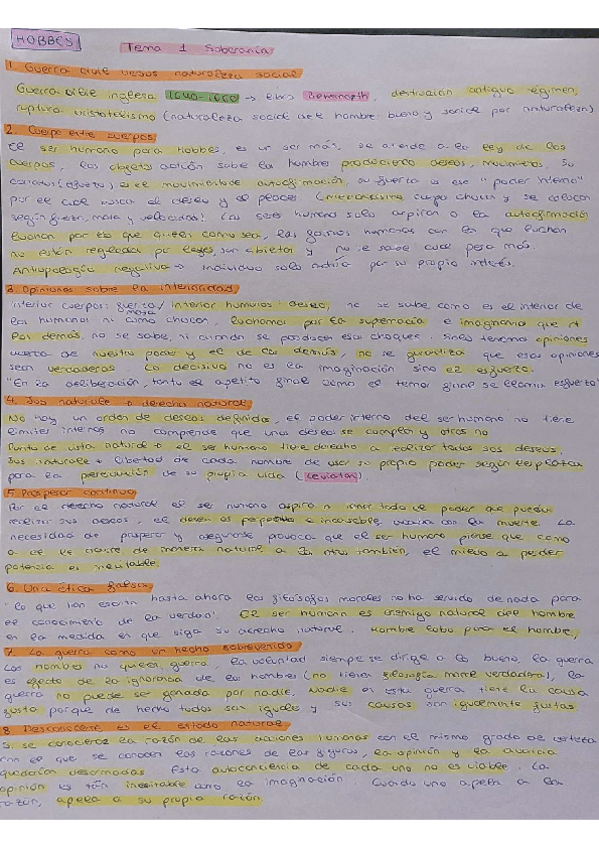 HOBBES
Tema 1 Soberanía
1. Guerra civil versus naturaleza social
Guerra civil inglesa 1640-1660 → libro Behemoth, destrucción antiguo régimen,
ruptura aristotelismo (naturaleza social del hombre bueno y social por naturaleza)
2. Cuerpo entre cuerpos
El ser humano para Hobbes, es un ser más, se atende a la ley de los
cuerpos, los objetos actúan sobe la hombre produciendo deseos, movimientos. Su
es el movimiento de autoafirmación, su fuerza es ese "poder interno"
por el cual busca el deseo y el placer. (mecanicismo cuerpo chocan y se colocan
según fuerza, masa y velocidad) Los seres humano solo aspiran a la autoafirmación
luchan por lo que quieren como sea, las guerras humanas con las que luchan
no están reguladas por leyes, son abiertas y no se sabe cual pesa más.
Antropología negativa → individuo solo mira por su propio interés.
3. Opiniones sobre la interioridad
Interior cuerpos: fuerza/masa interior humanos: deseo, no se sabe como es el interior de
los humanos ni como chocan, luchamos por la superación e imaginamos que
los demás, no se sabe, ni cuando se producen esos choques. Sino tenemos opiniones
acerca de nuestro poder y el de los demás, no se garantiza que esas opiniones
sean verdaderas. Lo decisivo no es la imaginación sino el esfuerzo.
"En la deliberación, tanto el apetito final como el temor final se llaman esfuerzo"
4. Ius naturale → derecho natural
No hay un orden de deseos definidos, el poder interno del ser humano no tiene
límites internos no comprende que unos deseos se cumplan y otros no
Punto de vista natural → el ser humano tiene derecho a realizar todos sus deseos.
Ius naturale → Libertad de cada hombre de usar su propio poder según le plazca
para la preservación de su propia vida (Leviatán)
5. Prosperar continuo
Por el derecho natural el ser humano aspira a tener todo el poder que pueda
realizar sus deseos, el deseo es perpetuo e incansable, acaba con la muerte. La
necesidad de prosperar y asegurarse provoca que el ser humano piense que como
a él le ocurre de manera natural a otros también, el miedo a perder
potencia es inevitable.
6. Una ética falsa
"lo que han escrito hasta ahora los filósofos morales no ha servido de nada para
el conocimiento de la verdad". El ser humano es enemigo natural del hombre
en la medida en que siga su derecho natural. Hombre lobo para el hombre,
7. La guerra como un hecho sobrevenido
Los hombres no quieren guerra, la voluntad siempre se dirige a lo bueno, la guerra
es efecto de la ignorancia de los hombres (no tienen filosofía moral verdadera), la
guerra no puede ser ganada por nadie, nadie en esta guerra tiene la causa
justa porque de hecho todos son iguales y sus causas son igualmente justas
8. Desconocerte es el estado natural
Si se conociera la razón de las acciones humanas con el mismo grado de certeza
con el que se conocen las razones de las figuras, la opinión y la avaricia
quedarían desarmadas. Esta autoconciencia de cada uno no es viable. La
opinión es tan inevitable como la imaginación. Cuando uno apela a la
razón, apela a su propia razón.